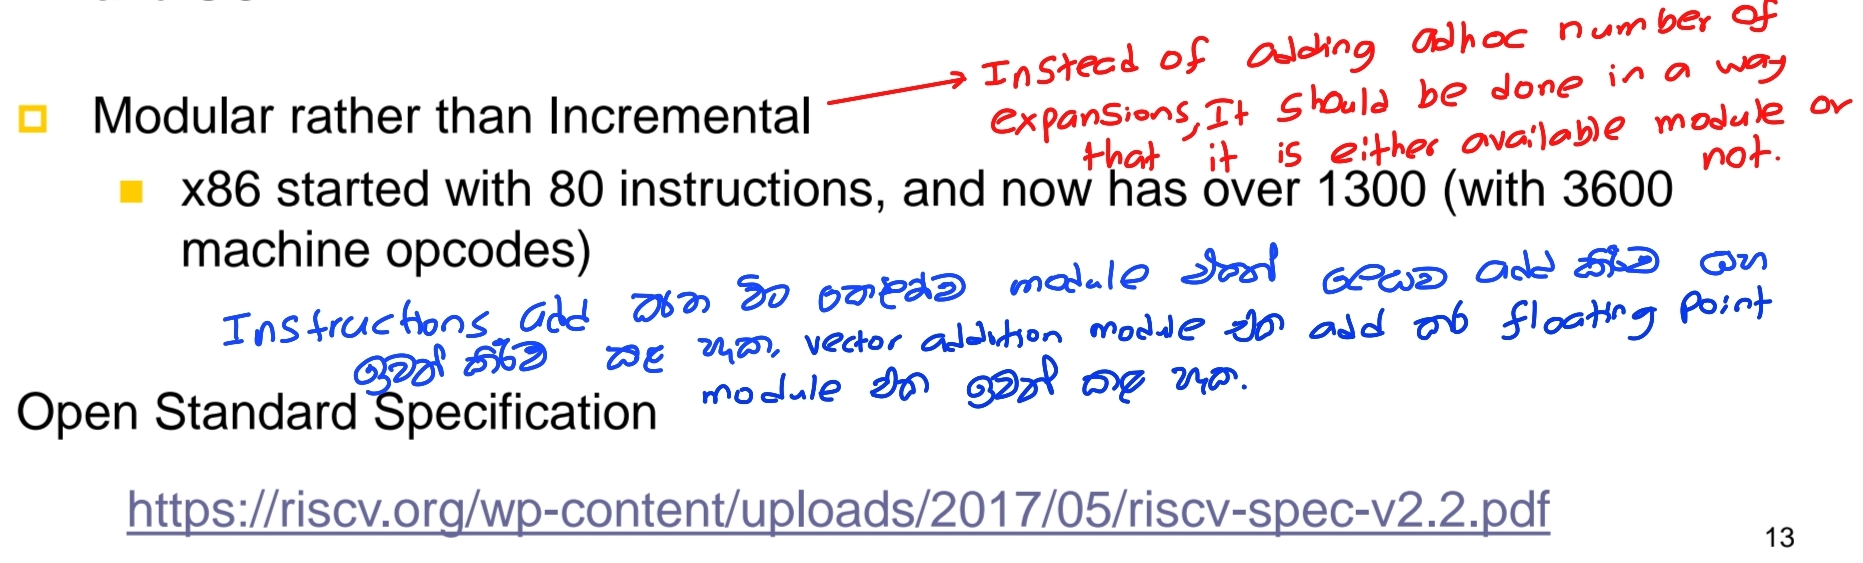 Instead of adding adhoc number of
Modular rather than Incremental
expansions, It should be done in a way
that it is either available module or
not.
x86 started with 80 instructions, and now has over 1300 (with 3600
machine opcodes)
Instructions add කරන විට module එකක් ලෙසට add කිරීම හා
ඉවත් කිරීම කළ හැක. vector addition module එක add කර floating point
module එක ඉවත් කළ හැක.
Open Standard Specification
https://riscv.org/wp-content/uploads/2017/05/riscv-spec-v2.2.pdf
13